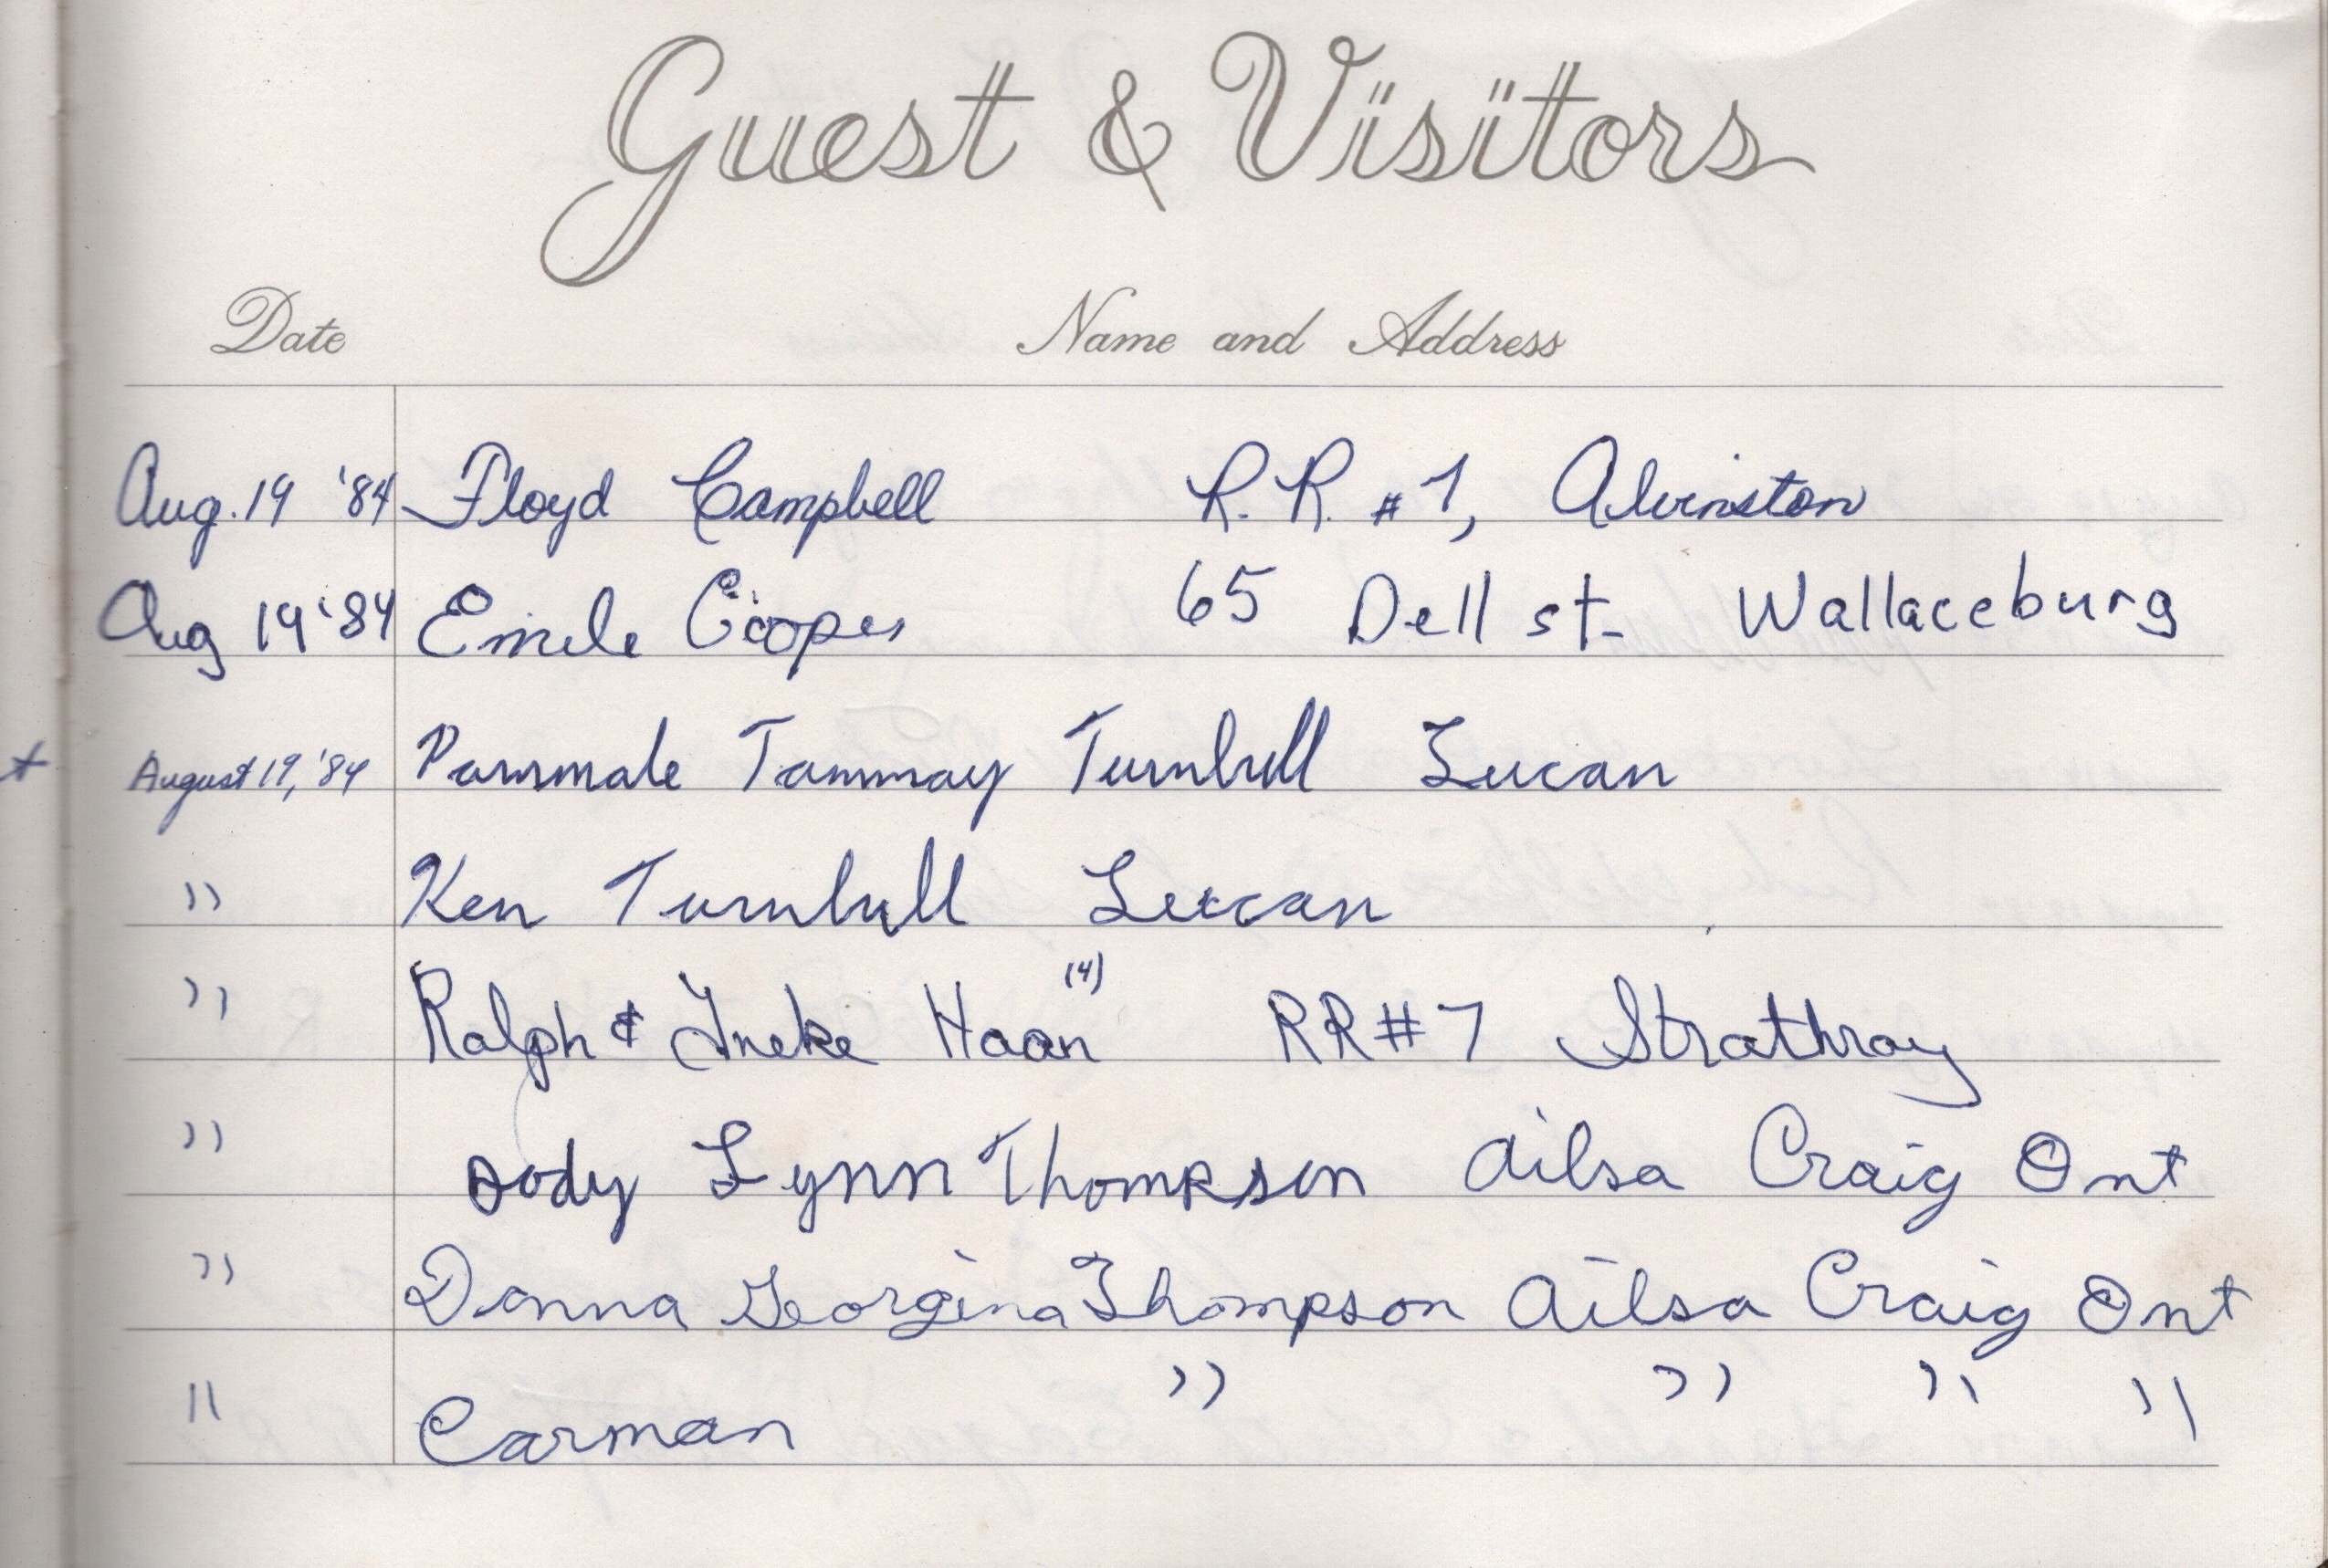 Guest & Visitors
Date Name and Address
Aug. 19 '84 Floyd Campbell R.R. #1, Alvinston
Aug 19 '84 Emile Cooper 65 Dell st. Wallaceburg
August 19, '84 Tammay Turnbull Lucan
" Ken Turnbull Lucan
" Ralph & Ineke Haan (4) RR#7 Strathroy
" Lynn Thompson Ailsa Craig Ont
" Donna Georgina Thompson Ailsa Craig Ont
" Carman " " " "